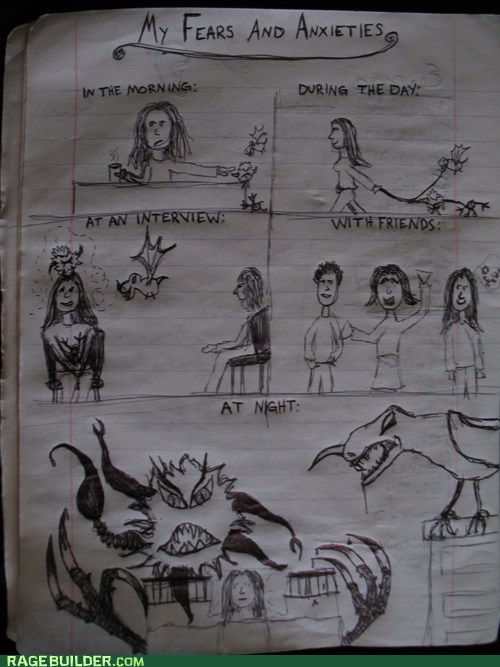 MY FEARS AND ANXIETIES
IN THE MORNING:
DURING THE DAY:
AT AN INTERVIEW:
WITH FRIENDS:
AT NIGHT:
RAGEBUILDER.COM